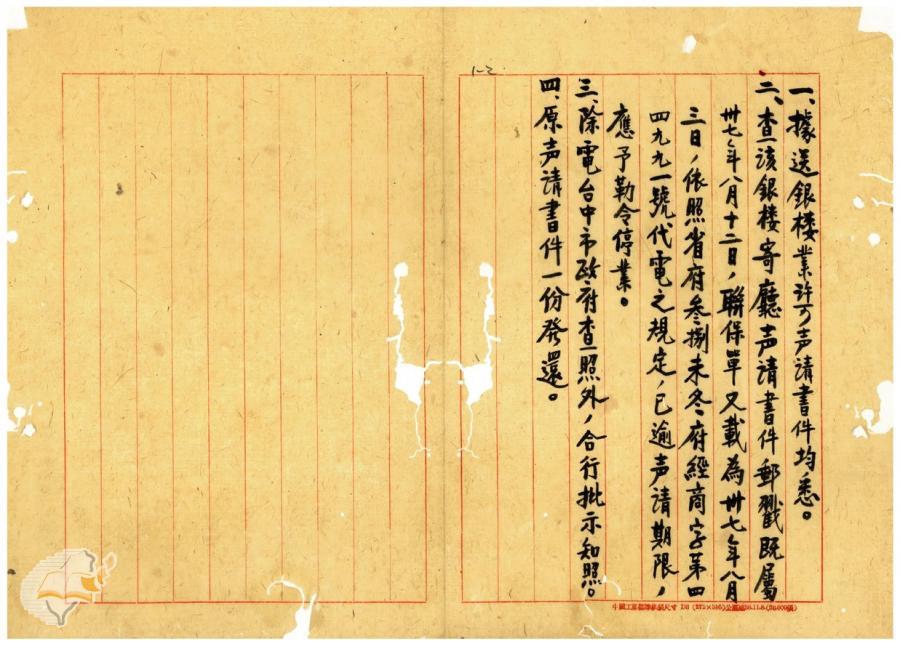 1-2
一、據送銀楼業許可声請書件均悉。
二、查該銀楼寄廳声請書件郵戳既屬
卅七年八月十二日，聯保單又載為卅七年八月
三日，依照省府叁捌未冬府經商字第四
四九九一號代電之規定，已逾声請期限，
應予勒令停業。
三、除電台中市政府查照外，合行批示知照。
四、原声請書件一份發還。